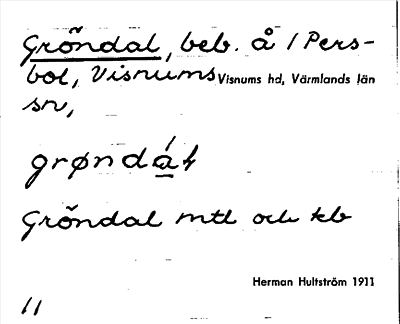 Gröndal, beb. å 1 Pers-
bol, Visnums Visnums hd, Värmlands län
sn,
grøndáł
Gröndal mtl och kb
Herman Hultström 1911
11